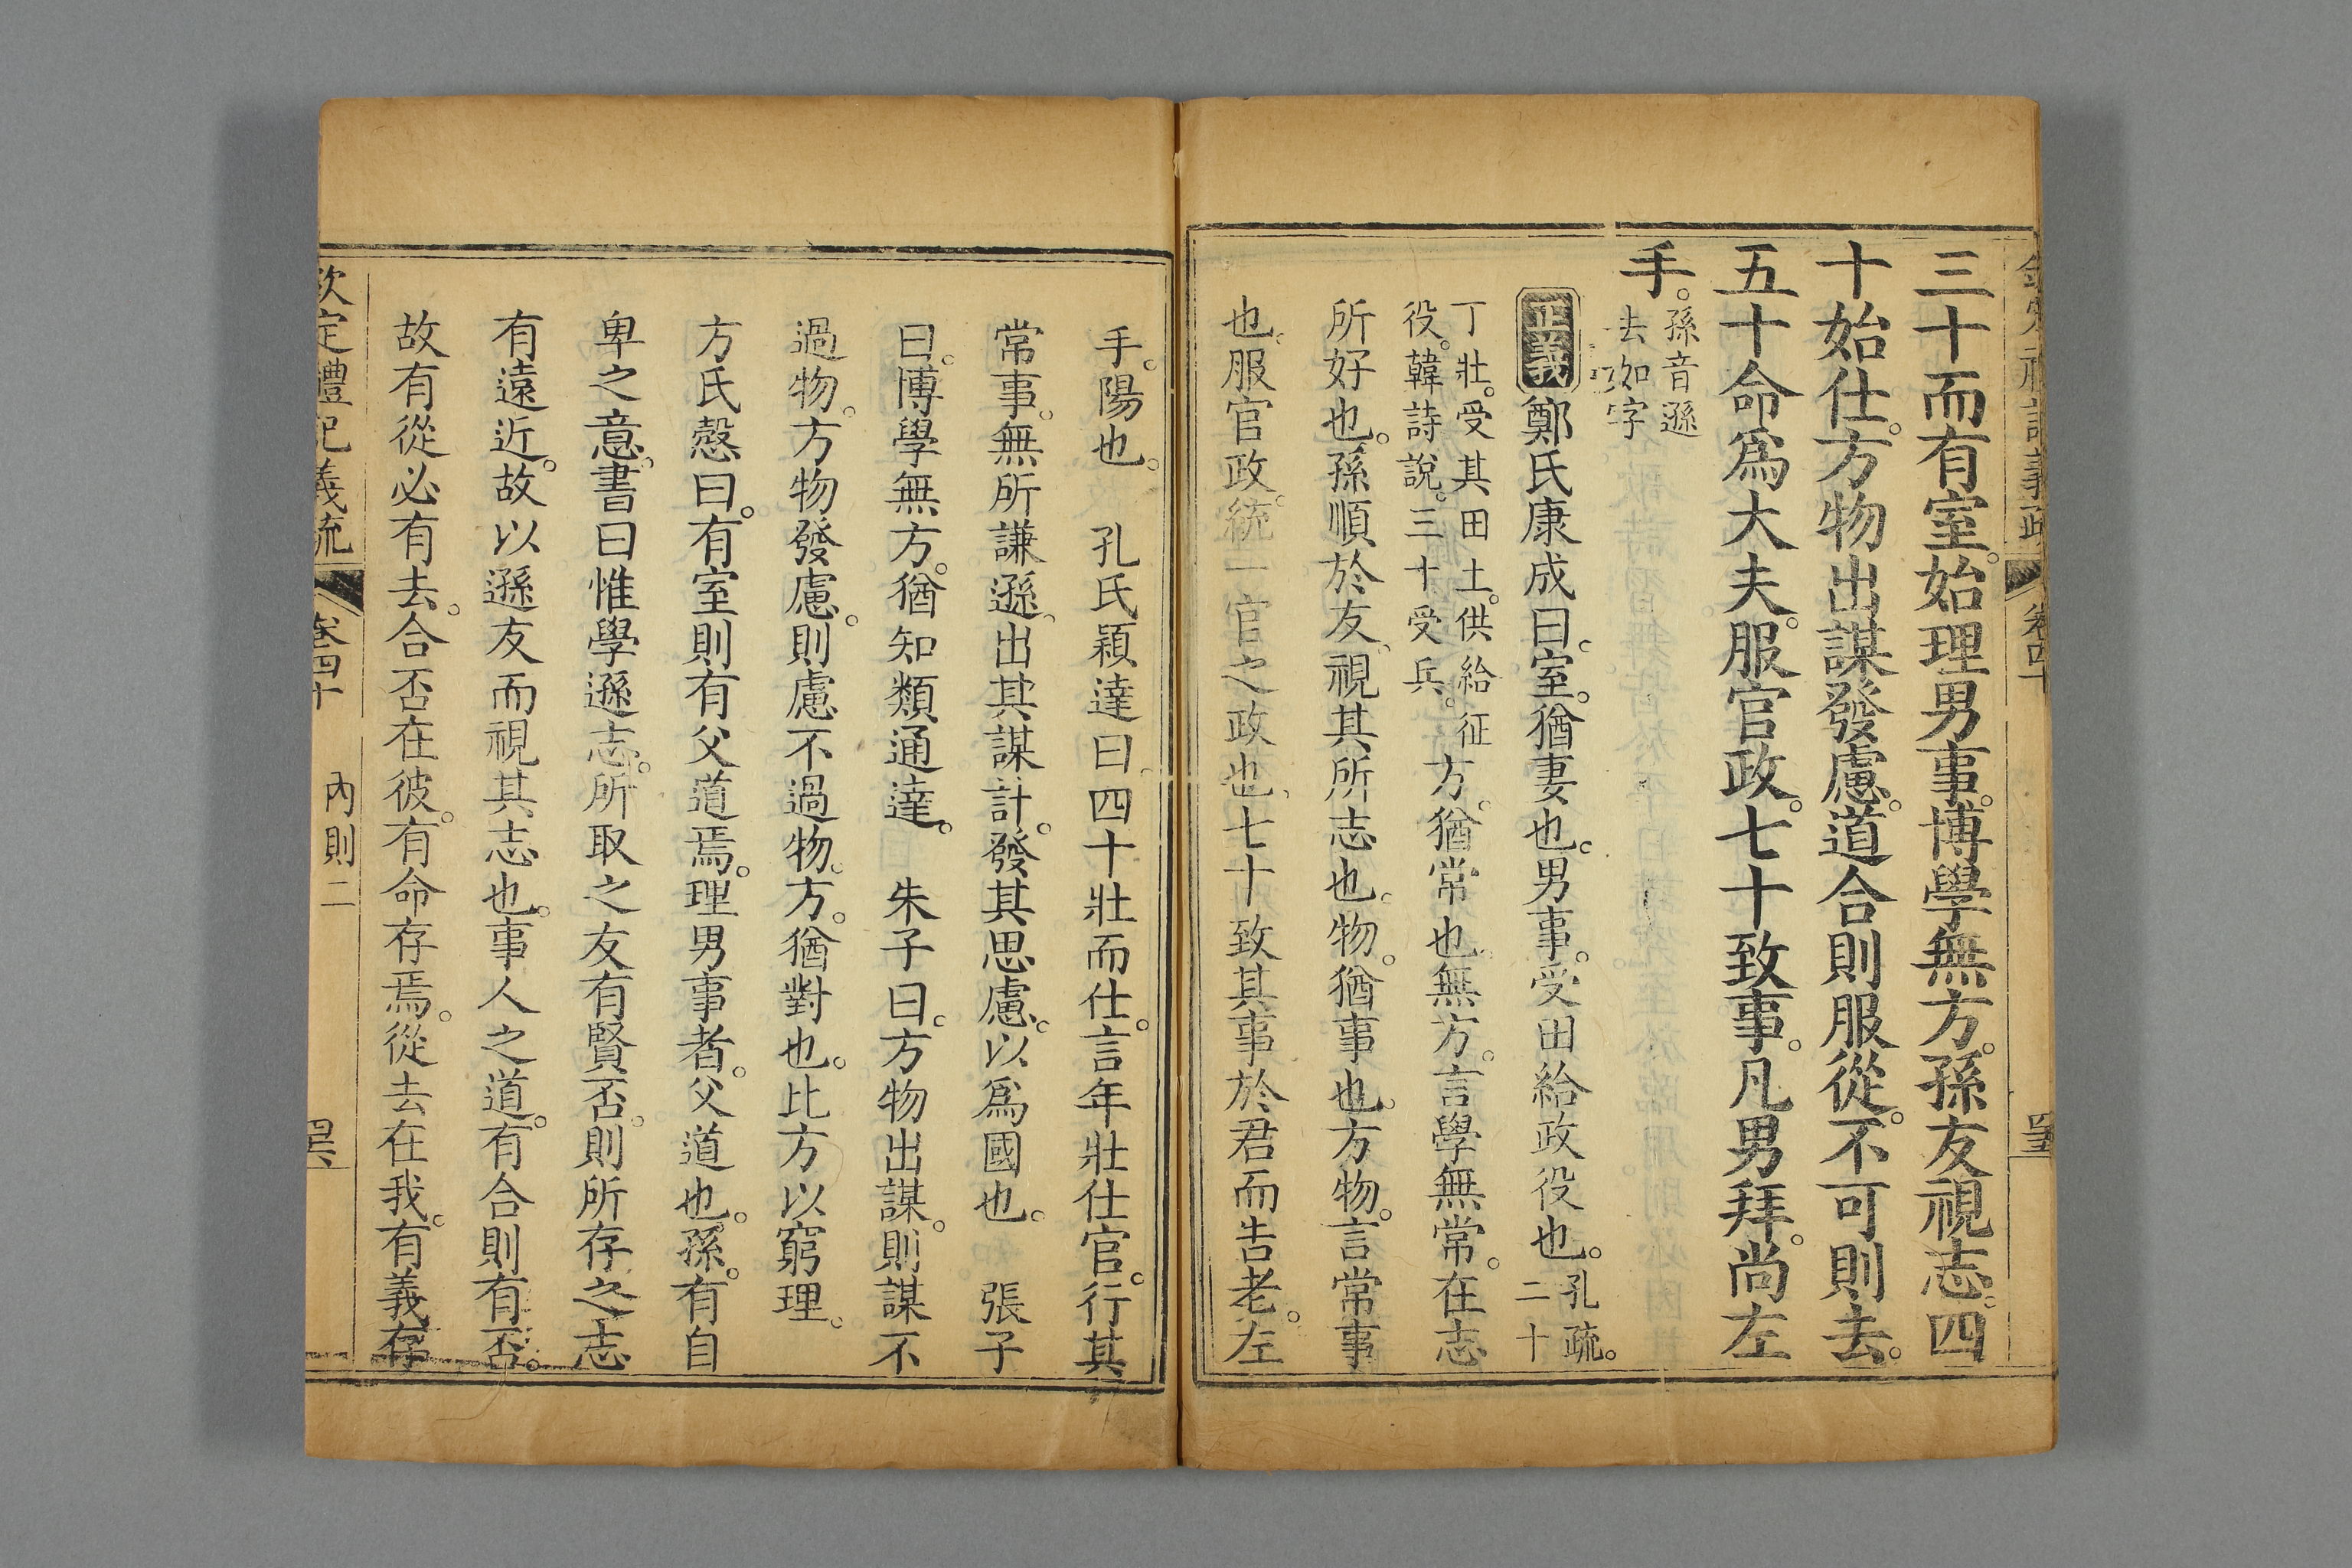 三十而有室。始理男事。博學無方。孫友視志。四
十始仕。方物出謀發慮。道合則服從。不可則去。
五十命爲大夫。服官政。七十致事。凡男拜。尚左
手。孫音遜去如字
正義鄭氏康成曰。室。猶妻也。男事。受田給政役也。孔疏。二十
丁壯。受其田土。供給征役。韓詩說。三十受兵。方猶常也。無方。言學無常。在志
所好也。孫順於友。視其所志也。物。猶事也。方物。言常事
也。服官政。統一官之政也。七十致其事於君而告老。左
卷四十
手。陽也。孔氏穎達曰。四十壯而仕。言年壯仕官。行其
常事。無所謙遜。出其謀計。發其思慮。以爲國也。張子
曰。博學無方。猶知類通達。朱子曰。方物出謀。則謀不
過物。方物發慮。則慮不過物。方。猶對也。比方以窮理。
方氏慤曰。有室則有父道焉。理男事者。父道也。孫。有自
卑之意。書曰惟學遜志。所取之友有賢否。則所存之志
有遠近。故以遜友而視其志也。事人之道。有合則有否。
故有從必有去。合否在彼。有命存焉。從去在我。有義存
欽定禮記義疏 卷四十 內則二